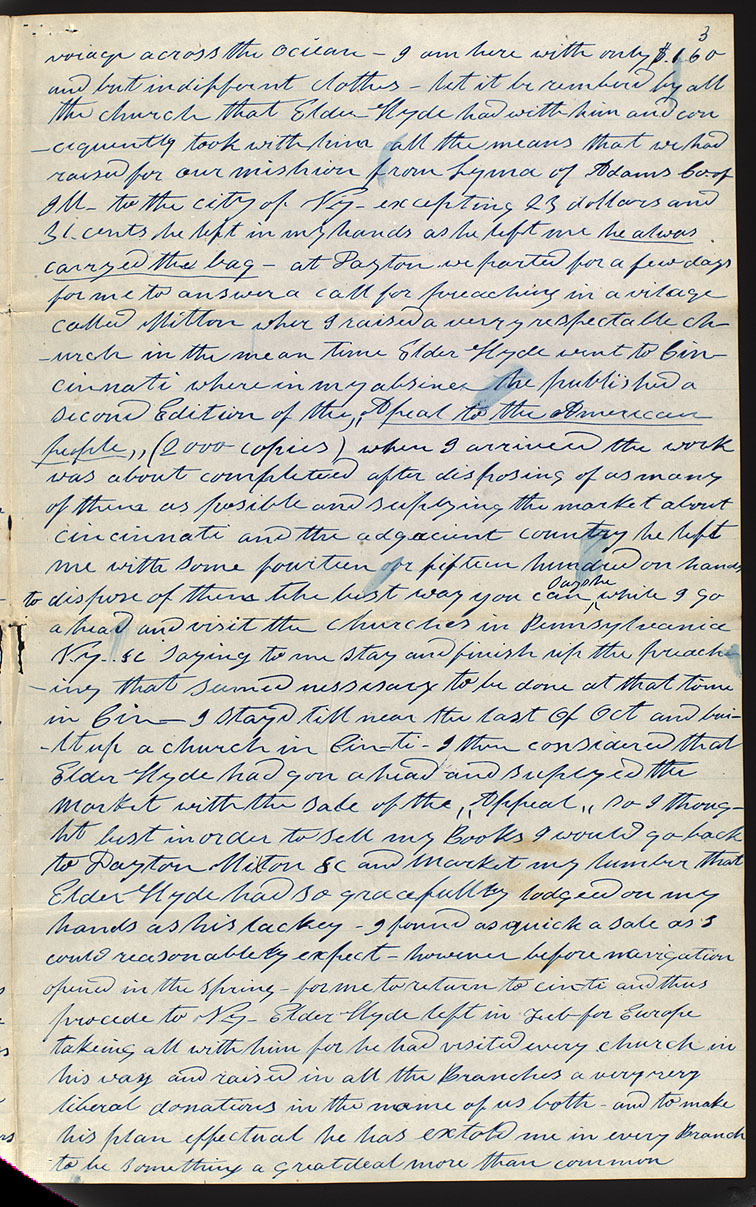 3
voiage across the ociean – I am here with only $.1 60
and but indifferent clothes – let it be rembered by all
the church that Elder Hyde had with him and con
-cequently took with him all the means that we had
raised for our mishion from Lyma of Adams Co of
Ill– to the city of N.y– excepting 23 dollars and
31. cents he left in my hands as he left me he alwas
carryed the bag – at Dayton we parted for a few days
for me to answer a call for preaching in a vilage
called Milton wher I raised a verry respectable ch–
–urch in the mean time Elder Hyde went to Cin–
cinnati where in my absince he published a
second Edition of the „Apeal to the American
people„ (2000 copies) when I arriveed the work
was about completeed after disposing of as many
of them as posible and suplying the market about
cincinnati and the adgacient country he left
me with some fourteen or fifteen hundred on hands
to dispose of them the best way you can, says he while I go
ahead and visit the churches in Pennsylvania
N.y. &c saying to me stay and finish up the preach–
–ing that seemed nessisary to be done at that time
in Cin– I stayd till near the last of Oct and bui–
–lt up a church in Cin–ti – I then considered that
Elder Hyde had gon ahead and suplyed the
market with the sale of the „Appeal„ so I thoug–
ht best in order to sell my Books I would go back
to Dayton Milton &c and market my lumber that
Elder Hyde had so gracefully lodgeed on my
hands as his lackey – I found as quick a sale as I
could reasonablely expect – however before navigation
opened in the spring – for me to return to cin–ti and thus
procede to N.y– Elder Hyde left in Feb– for Europe
takeing all with him for he had visited every church in
his way and raised in all the Branches a very very
liberal donations in the name of us both – and to make
his plan effectual he has extold me in every Branch
to be something a great deal more than common